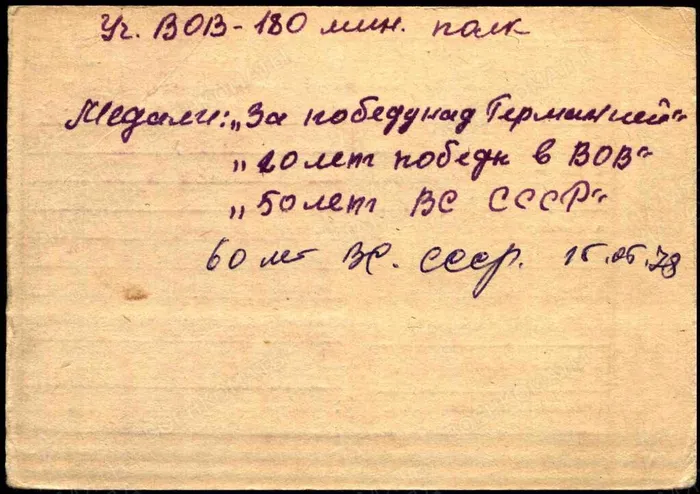 Уч. ВОВ - 180 мин. полк
Медали: „За победу над Германией"
„20 лет победы в ВОВ"
„50 лет ВС СССР"
60 лет ВС. СССР. 15.05.78